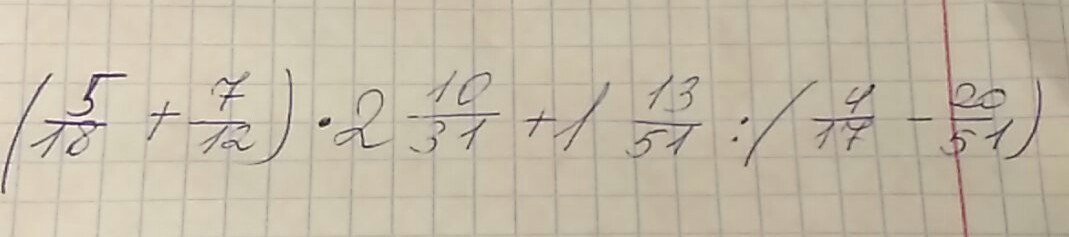 (5/18 + 7/12) · 2 10/31 + 1 13/51 : (4/17 − 20/51)